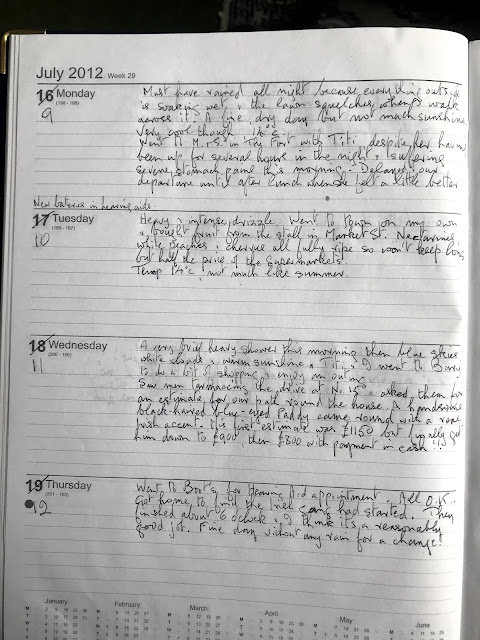 July 2012 Week 29
16 Monday
(198 - 168)
9
Must have rained all night because everything outside
is soaking wet, & the lawn squelches when I walk
across it! A fine dry day but not much sunshine
very cool though 16°c.
Went to M & S. in The Fort with Titi despite her having
been up for several hours in the night & suffering
severe stomach pains this morning. Delayed our
departure until after lunch when she felt a little better
New batteries in hearing aids.
17 Tuesday
(199 - 167)
10
Heavy & intense drizzle. Went to town on my own
& bought fruit from the stall in Market St. Nectarines,
white peaches & cherries all fully ripe so won't keep long
but half the price of the supermarkets.
Temp 14°c, not much like summer.
18 Wednesday
(200 - 166)
11
A very brief heavy shower this morning then blue skies
white clouds & warm sunshine. Titi & I went to Bury
to do a bit of shopping & enjoy an outing.
Saw men tarmacing the drive at No. 15 & asked them for
an estimate for our path round the house. A handsome
black-haired blue-eyed Paddy came round with a real
Irish accent. His first estimate was £1150 but I got
him down to £900, then £800 with payment in cash!!!
19 Thursday
(201 - 165)
12
Went to Boots for Hearing Aid appointment. All O.K.
Got home to find the men had started. They
finished about 6 o'clock & I think it's a reasonably
good job. Fine day without any rain for a change!
January
February
March
April
May
June